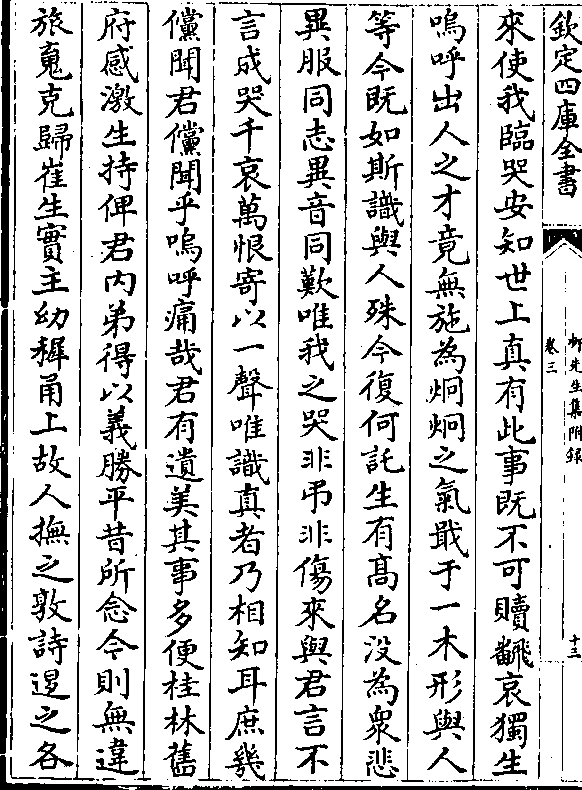 欽定四庫全書
柳先生集附錄
卷三
十三
來使我臨哭安知世上真有此事既不可贖翻哀獨生
嗚呼出人之才竟無施為炯炯之氣戢于一木形與人
等今既如斯識與人殊今復何託生有髙名没為衆悲
異服同志異音同歎唯我之哭非弔非傷來與君言不
言成哭千哀萬恨寄以一聲唯識真者乃相知耳庶幾
儻聞君儻聞乎嗚呼痛哉君有遺美其事多便桂林舊
府感激生持俾君内弟得以義勝平昔所念今則無違
旅䰟克歸崔生實主幼穉甬上故人撫之敦詩退之各